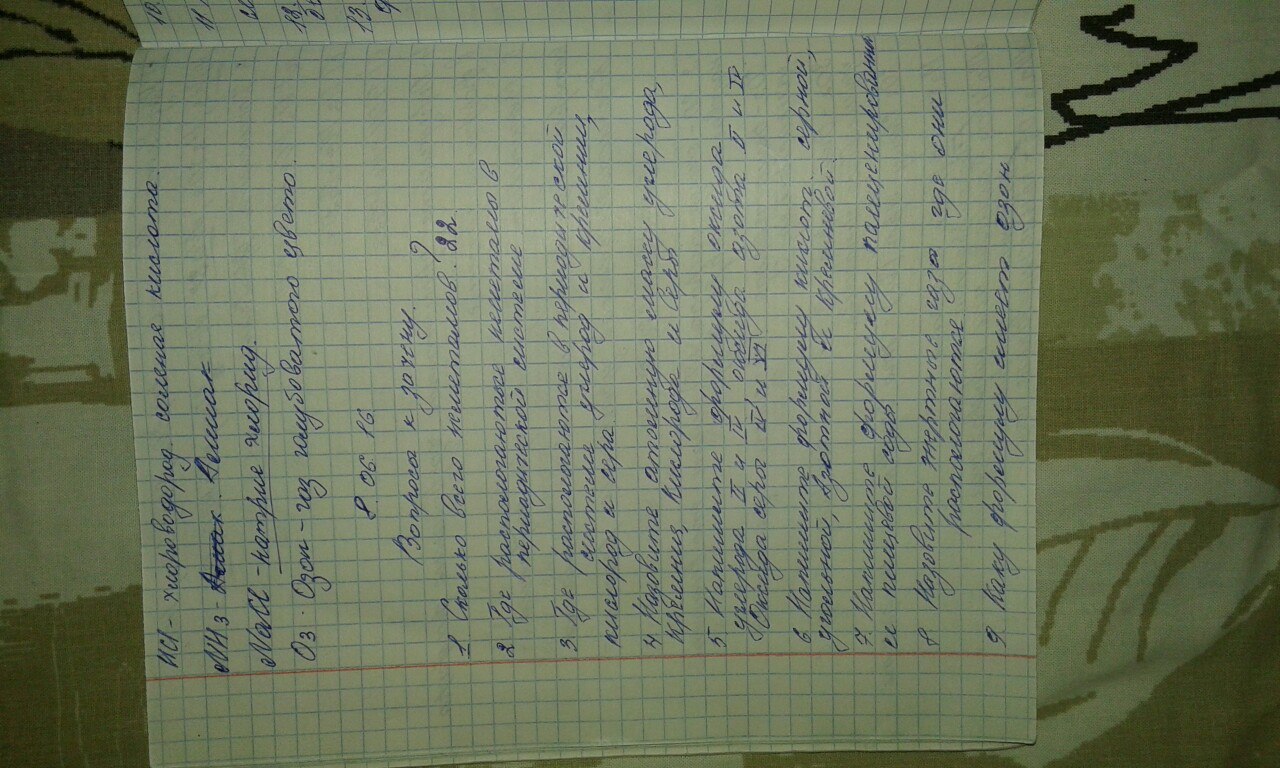 HCl - хлороводород соленая кислота.
NH3 - Аммиак
NaCl - натрие хлорид.
O3. Озон - газ голубоватого цвета.
8. 06. 16
Вопроса к зачету.
1 Сколько всего неметаллов? 22
2 Где распологаются неметалло в
периодической системе
3 Где распологаются в периодической
системе углерод и кремнии,
кислород и сера
4 Назовите атомную массу углерода,
кремнии, кислорода и серы
5 Напишите формулу оксида
углерода II и IV оксида азота II и IV
Оксида серы IV и VI
6 Напишите формулу кислот: серной,
угольной, азотной и кремневой.
7. Напишите формулу
и пищевой соды
8 Назовите инертные газы где они
распологаются
9 Каку формулу имеет озон
10
11.
12.
13.